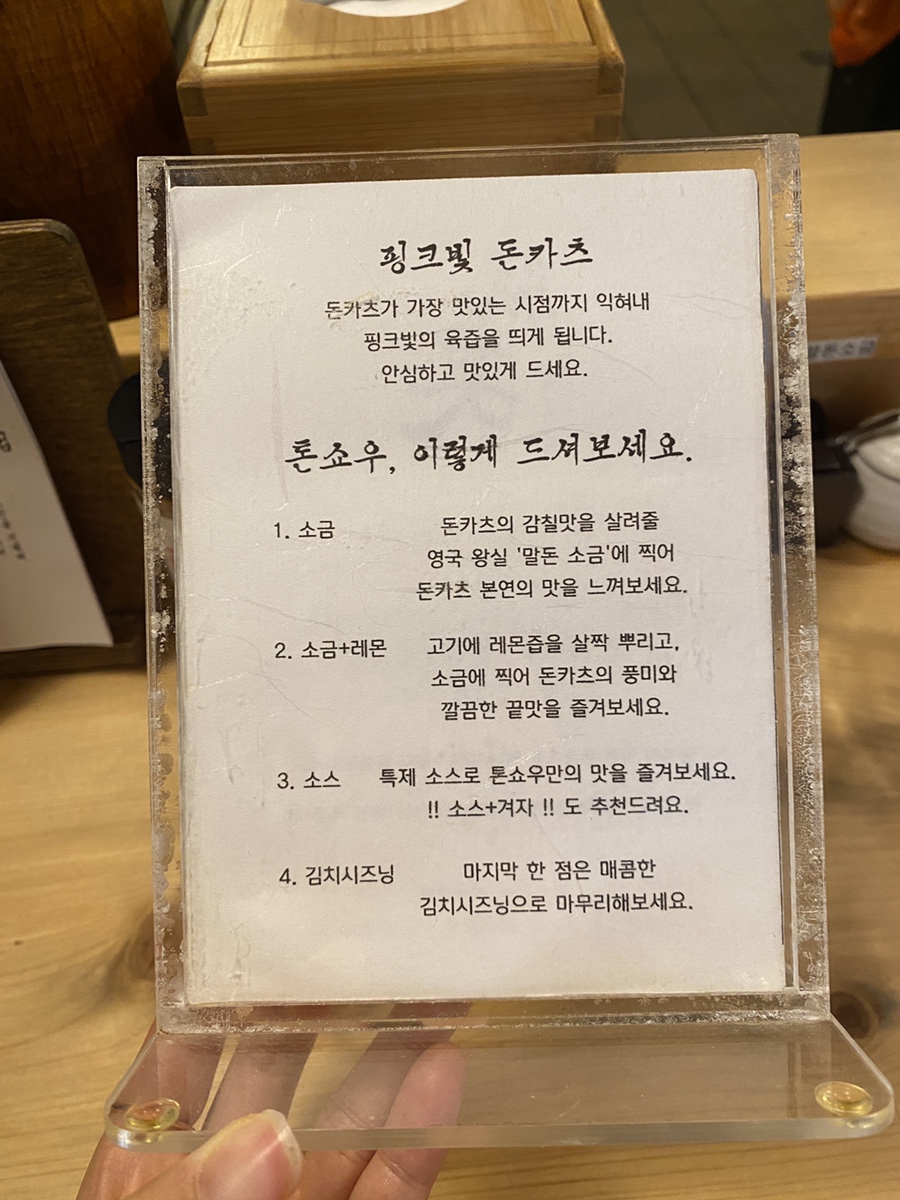 핑크빛 돈카츠
돈카츠가 가장 맛있는 시점까지 익혀내
핑크빛의 육즙을 띄게 됩니다.
안심하고 맛있게 드세요.
톤쇼우, 이렇게 드셔보세요.
1. 소금 돈카츠의 감칠맛을 살려줄
영국 왕실 '말돈 소금'에 찍어
돈카츠 본연의 맛을 느껴보세요.
2. 소금+레몬 고기에 레몬즙을 살짝 뿌리고,
소금에 찍어 돈카츠의 풍미와
깔끔한 끝맛을 즐겨보세요.
3. 소스 특제 소스로 톤쇼우만의 맛을 즐겨보세요.
!! 소스+겨자 !! 도 추천드려요.
4. 김치시즈닝 마지막 한 점은 매콤한
김치시즈닝으로 마무리해보세요.